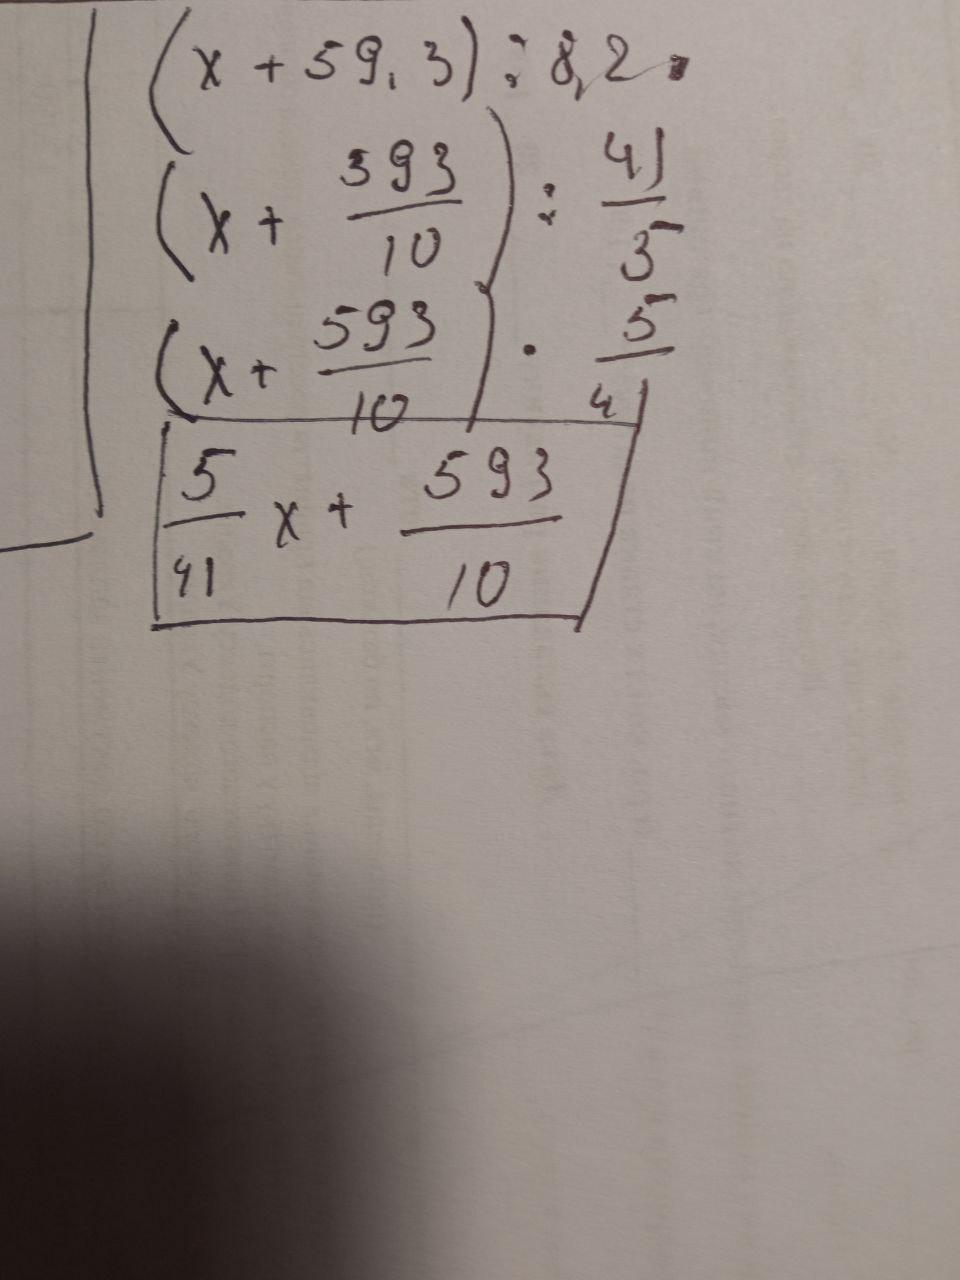 (x + 59,3) : 8,2
(x + 593/10) : 41/5
(x + 593/10) · 5/4
5/41 x + 593/10